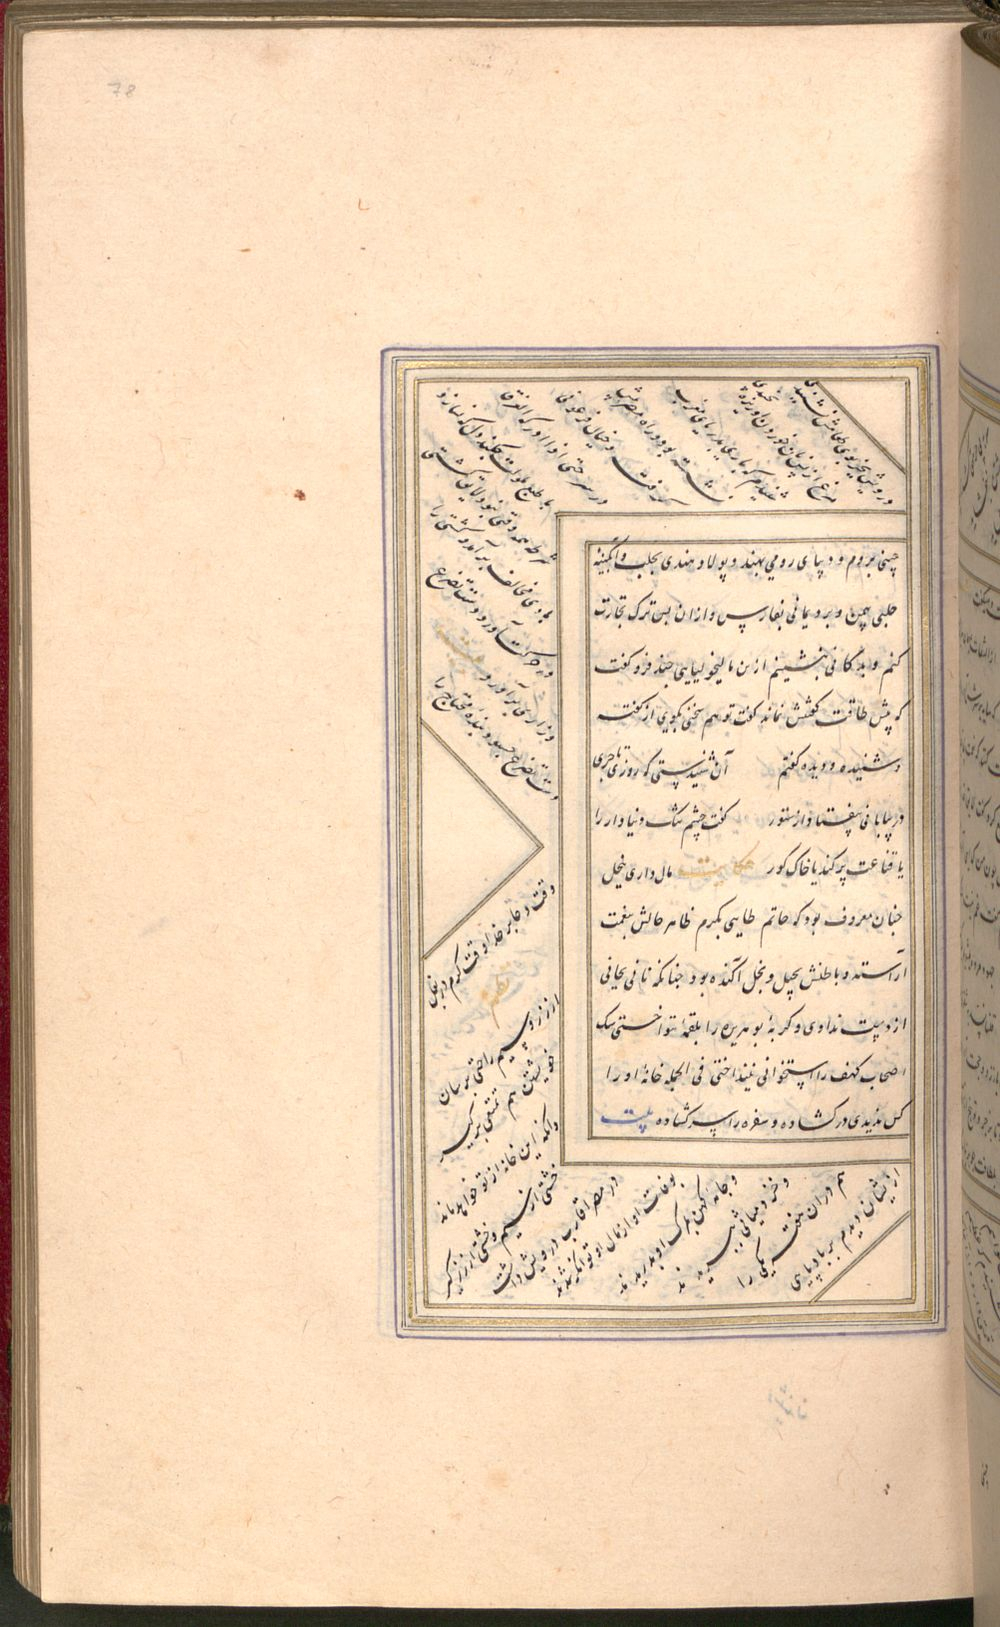 78
چینی بروم و دیبای رومی بهند و پولاد هندی بحلب و آبگینهٔ
حلبی بیمن و برد یمانی بفارس و از ان بس ترک تجارت
کنم و بدکانی بنشینم ازین مالیخولیایی چند فرو گفت
که بیش طاقت کفتنش نماند کفت تو هم سخنی بکوی از کفته
و شنیده و دیده کفتم آن شنیدستی که روزی تاجری
در بیابانی بیفتاد از ستور کفت چشم تنک دنیادار را
یا قناعت پر کند یا خاک کور حکایت مال داری بخیل
جنان معروف بود که حاتم طایی بکرم ظاهر حالش بنعمت
آراسته و باطنش بجهل و بخل آکنده بود جنانکه نانی بجانی
از دست ندادی و کربهٔ بوهریره را بلقمهٔ ننواختی سک
اصحاب کهف را استخوانی نینداختی فی الجمله خانهٔ او را
کس ندیدی در کشاده و سفره را سر کشاده بیت
درویش بجز بوی طعامش نشنیدی
مرغ از پس نان خوردن او ریزه نچیدی
شنیدم که بدریای مغرب
نشسته بود و راه مصر پیش
گرفت و خیال فرعونی
در سر حتی اذا ادرکه الغرق
با طبع ملولت چکند دل که نسازد
شرطه همه وقتی نبود لایق کشتی
بادی مخالف برآمد و کشتی را
در حرکت آورد دست تضرع
و زاری برآورد
دست تضرع چه سود بندهٔ محتاج را
وقت دعا بر خدا وقت کرم در بغل
نظم
از زر و سیم راحتی برسان
خویشتن هم تمتعی برگیر
وانکه این خانه از تو خواهد ماند
خشتی از سیم و خشتی از زر گیر
در مصر اقارب درویش داشت
بوفات او از مال او توانگر شدند
و جامهٔ کهن بمرگ او بدریدند
و خز و دمیاطی ببریدند
هم دران هفته یکی را
از ایشان دیدم بر بادپایی